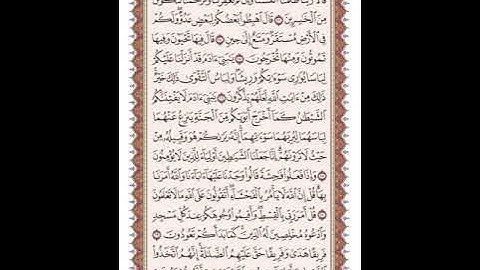 قَالَا رَبَّنَا ظَلَمْنَا أَنفُسَنَا وَإِن لَّمْ تَغْفِرْ لَنَا وَتَرْحَمْنَا لَنَكُونَنَّ
مِنَ الْخَاسِرِينَ ۝ قَالَ اهْبِطُوا بَعْضُكُمْ لِبَعْضٍ عَدُوٌّ وَلَكُمْ
فِي الْأَرْضِ مُسْتَقَرٌّ وَمَتَاعٌ إِلَىٰ حِينٍ ۝ قَالَ فِيهَا تَحْيَوْنَ وَفِيهَا
تَمُوتُونَ وَمِنْهَا تُخْرَجُونَ ۝ يَا بَنِي آدَمَ قَدْ أَنزَلْنَا عَلَيْكُمْ
لِبَاسًا يُوَارِي سَوْءَاتِكُمْ وَرِيشًا وَلِبَاسُ التَّقْوَىٰ ذَٰلِكَ خَيْرٌ
ذَٰلِكَ مِنْ آيَاتِ اللَّهِ لَعَلَّهُمْ يَذَّكَّرُونَ ۝ يَا بَنِي آدَمَ لَا يَفْتِنَنَّكُمُ
الشَّيْطَانُ كَمَا أَخْرَجَ أَبَوَيْكُم مِّنَ الْجَنَّةِ يَنزِعُ عَنْهُمَا
لِبَاسَهُمَا لِيُرِيَهُمَا سَوْءَاتِهِمَا إِنَّهُ يَرَاكُمْ هُوَ وَقَبِيلُهُ مِنْ
حَيْثُ لَا تَرَوْنَهُمْ إِنَّا جَعَلْنَا الشَّيَاطِينَ أَوْلِيَاءَ لِلَّذِينَ لَا يُؤْمِنُونَ
۝ وَإِذَا فَعَلُوا فَاحِشَةً قَالُوا وَجَدْنَا عَلَيْهَا آبَاءَنَا وَاللَّهُ أَمَرَنَا
بِهَا قُلْ إِنَّ اللَّهَ لَا يَأْمُرُ بِالْفَحْشَاءِ أَتَقُولُونَ عَلَى اللَّهِ مَا لَا تَعْلَمُونَ
۝ قُلْ أَمَرَ رَبِّي بِالْقِسْطِ وَأَقِيمُوا وُجُوهَكُمْ عِندَ كُلِّ مَسْجِدٍ
وَادْعُوهُ مُخْلِصِينَ لَهُ الدِّينَ كَمَا بَدَأَكُمْ تَعُودُونَ ۝
فَرِيقًا هَدَىٰ وَفَرِيقًا حَقَّ عَلَيْهِمُ الضَّلَالَةُ إِنَّهُمُ اتَّخَذُوا